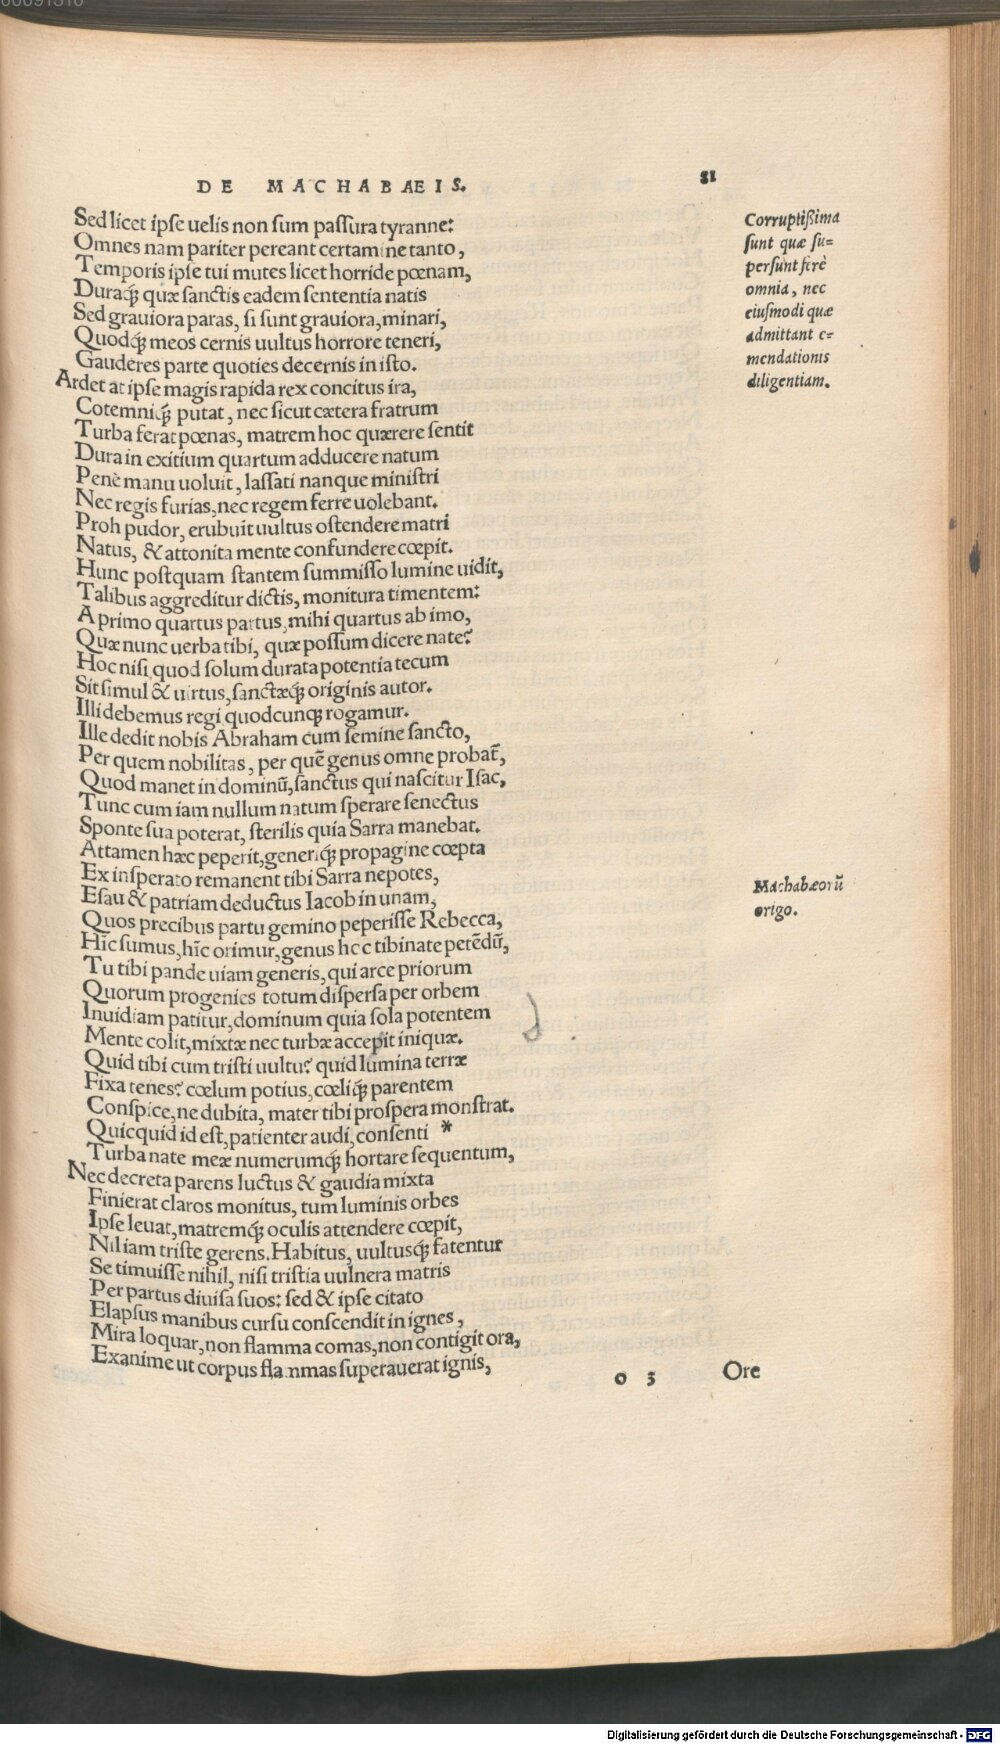 00091310
DE MACHABAEIS. 81
Sed licet ipse uelis non sum passura tyranne:
Omnes nam pariter pereant certamine tanto,
Temporis ipse tui mutes licet horride pœnam,
Duraq́ꝫ quæ sanctis eadem sententia natis
Sed grauiora paras, si sunt grauiora, minari,
Quodq́ꝫ meos cernis uultus horrore teneri,
Gauderes parte quoties decernis in isto.
Ardet at ipse magis rapida rex concitus ira,
Cotemniq́ꝫ putat, nec sicut cætera fratrum
Turba ferat pœnas, matrem hoc quærere sentit
Dura in exitium quartum adducere natum
Penè manu uoluit, lassati nanque ministri
Nec regis furias, nec regem ferre uolebant.
Proh pudor, erubuit uultus ostendere matri
Natus, & attonita mente confundere cœpit.
Hunc postquam stantem summisso lumine uidit,
Talibus aggreditur dictis, monitura timentem:
A primo quartus partus, mihi quartus ab imo,
Quæ nunc uerba tibi, quæ possum dicere nate?
Hoc nisi, quod solum durata potentia tecum
Sit simul & uirtus, sanctæq́ꝫ originis autor.
Illi debemus regi quodcunqꝫ rogamur.
Ille dedit nobis Abraham cum semine sancto,
Per quem nobilitas, per quē genus omne probat̄,
Quod manet in dominū, sanctus qui nascitur Isac,
Tunc cum iam nullum natum sperare senectus
Sponte sua poterat, sterilis quia Sarra manebat.
Attamen hæc peperit, generiq́ꝫ propagine cœpta
Ex insperato remanent tibi Sarra nepotes,
Esau & patriam deductus Iacob in unam,
Quos precibus partu gemino peperisse Rebecca,
Hîc sumus, hîc orimur, genus hoc tibi nate petēdū,
Tu tibi pande uiam generis, qui arce priorum
Quorum progenies totum dispersa per orbem
Inuidiam patitur, dominum quia sola potentem
Mente colit, mixtæ nec turbæ accepit iniquæ.
Quid tibi cum tristi uultu? quid lumina terræ
Fixa tenes? cœlum potius, cœliq́ꝫ parentem
Conspice, ne dubita, mater tibi prospera monstrat.
Quicquid id est, patienter audi, consenti *
Turba nate meæ numerumq́ꝫ hortare sequentum,
Nec decreta parens luctus & gaudia mixta
Finierat claros monitus, tum luminis orbes
Ipse leuat, matremq́ꝫ oculis attendere cœpit,
Nil iam triste gerens. Habitus, uultusq́ꝫ fatentur
Se timuisse nihil, nisi tristia uulnera matris
Per partus diuisa suos: sed & ipse citato
Elapsus manibus cursu conscendit in ignes,
Mira loquar, non flamma comas, non contigit ora,
Exanime ut corpus flammas superauerat ignis,
o 3 Ore
Corruptißima
sunt quæ su=
persunt ferè
omnia, nec
eiusmodi quæ
admittant e=
mendationis
diligentiam.
Machabæorū
origo.
Digitalisierung gefördert durch die Deutsche Forschungsgemeinschaft - DFG